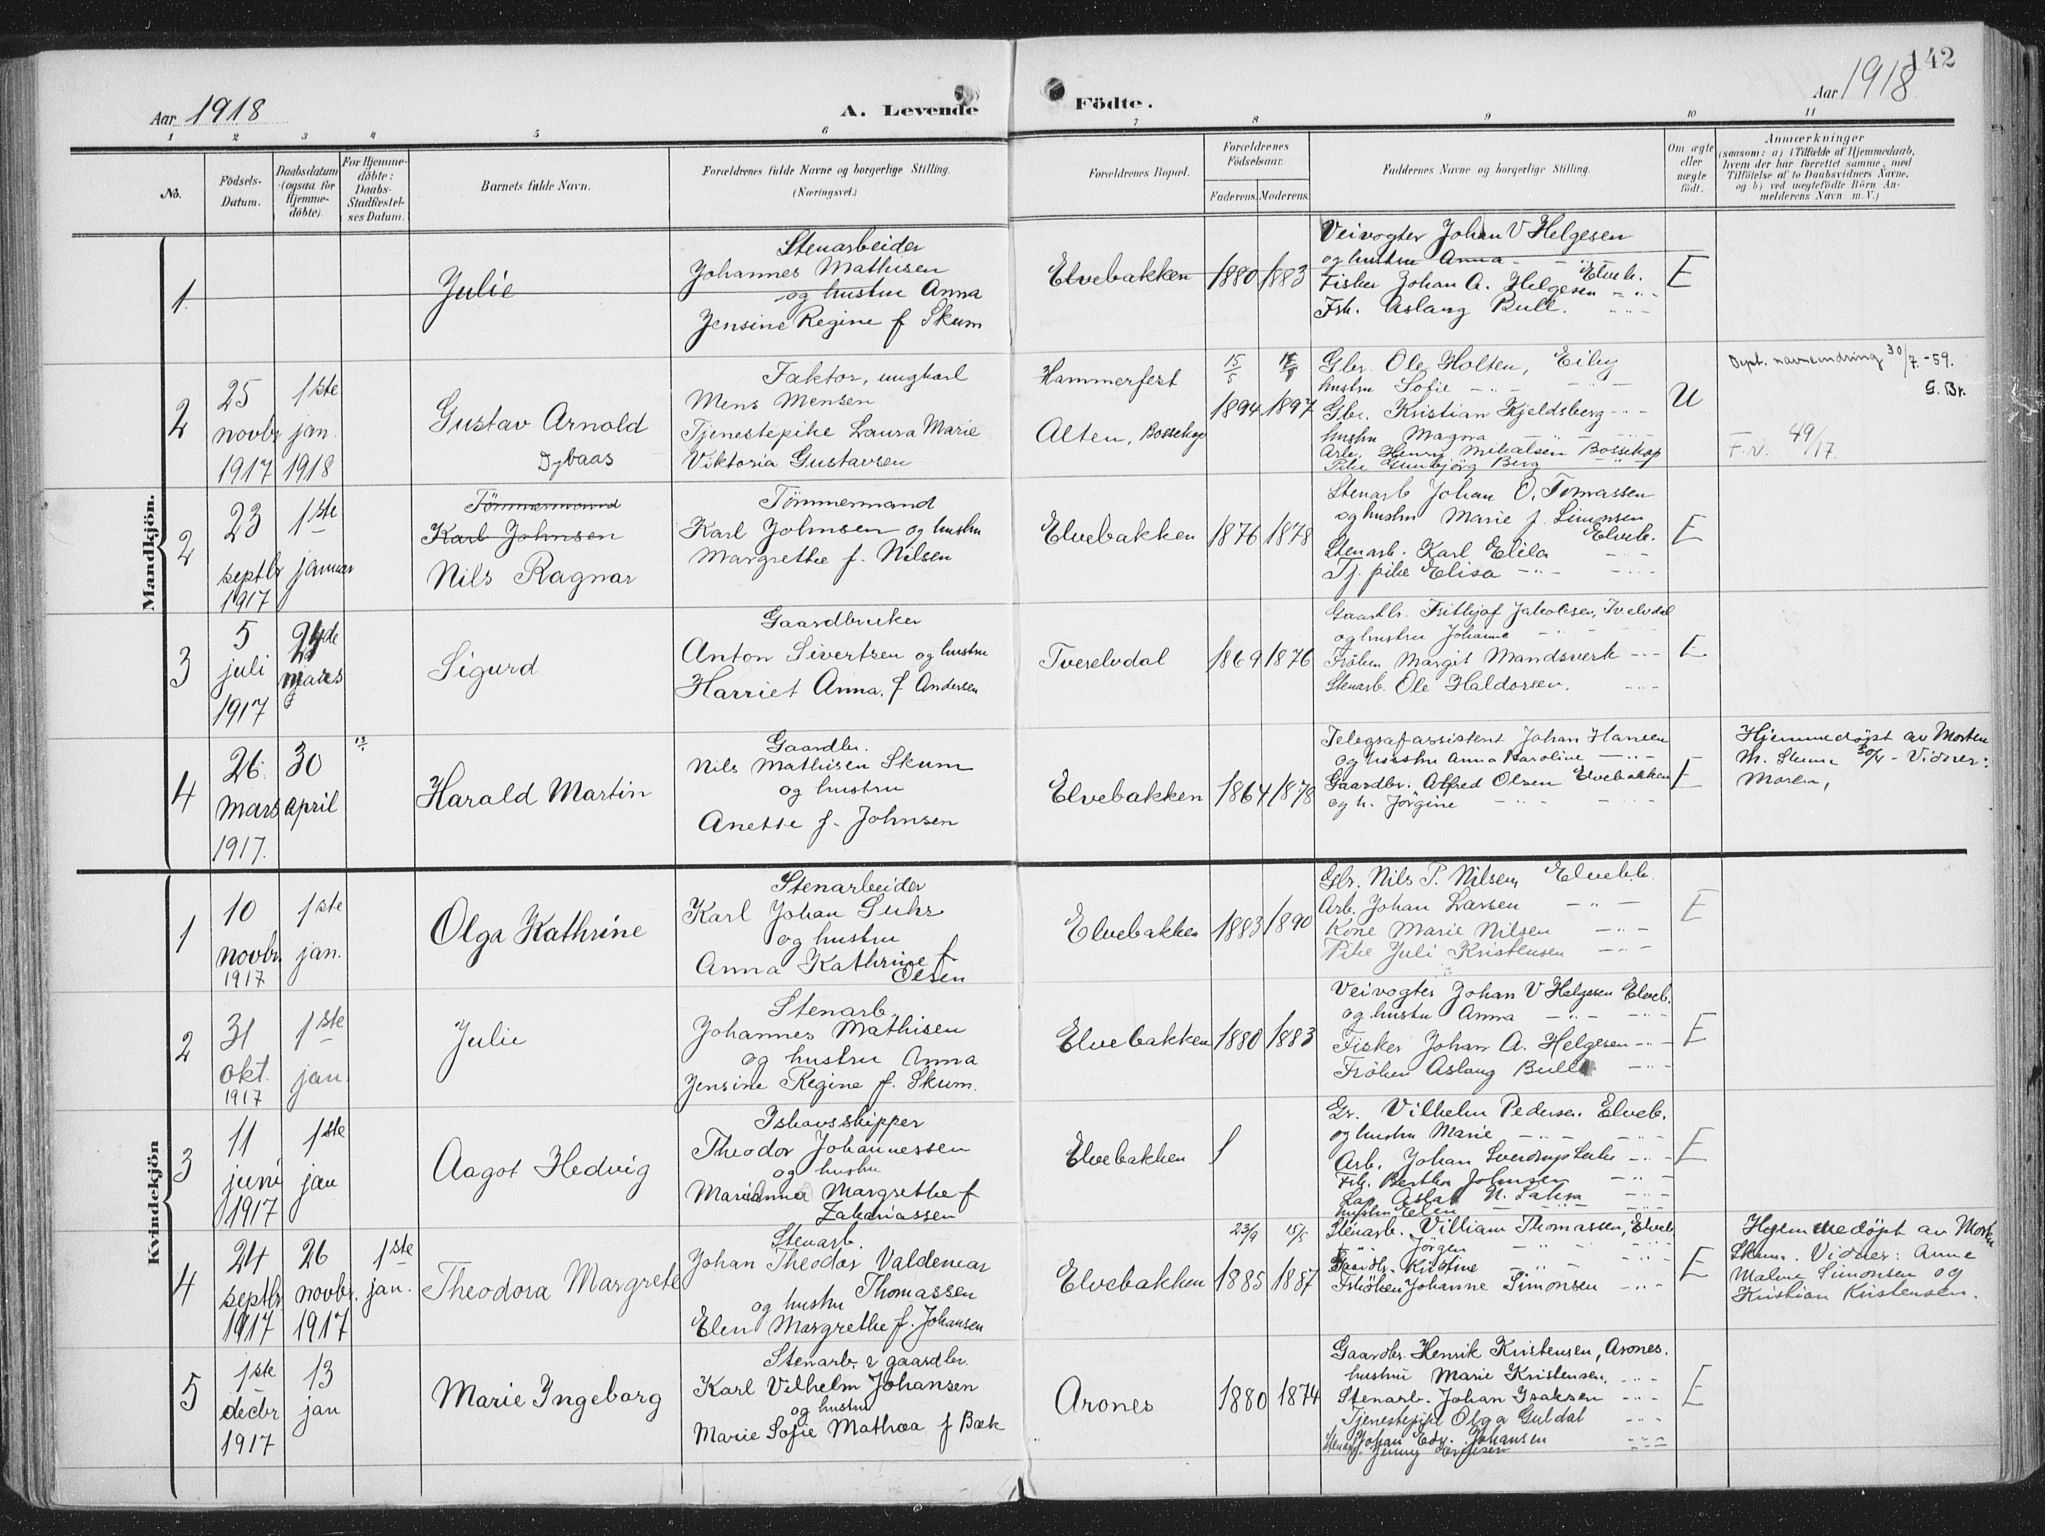 142
Aar 1918
A. Levende
Födte.
Aar 1918
1 2 3 4 5 6 7 8 9 10 11
No.
Födsels-
Datum.
Daabsdatum
(ogsaa for
Hjemme-
döbte).
For Hjemme-
döbte:
Daabs-
Stadfæstel-
ses Datum.
Barnets fulde Navn.
Forældrenes fulde Navne og borgerlige Stilling.
(Næringsvei.)
Forældrenes Bopæl.
Forældrenes
Födselsaar.
Faderens. Moderens.
Faddernes Navne og borgerlige Stilling.
Om ægte
eller
uægte
födt.
Anmærkninger
(saasom: a) i Tilfælde af Hjemmedaab,
hvem der har forrettet samme, med
Tilföielse af to Daabsvidners Navne,
og b) ved uægtefödte Börn An-
melderens Navn m. V.)
Mandkjön.
1.
Julie
Stenarbeider
Johannes Mathisen
og hustru Anna
Jensine Regine f Skum
Elvebakken
1880 1883
Veivogter Johan V Helgesen
og hustru Anna - " -
Elveb.
Fisker Johan A. Helgesen - " -
Frk. Aslaug Bull. - " -
E
2
25
novbr
1917
1ste
jan.
1918
Gustav Arnold
Dybaas
Faktor, ungkarl
Mens Mensen
Tjenestepike Laura Marie
Viktoria Gustavsen
Hammerfest
Alten, Bossekop
15/5
1894 1897
Gbr. Ole Holten, Eiby
hustru Sofie - " -
Gbr. Kristian Kjeldsberg - " -
hustru Magna - " -
Arb. Henry Mikalsen Bossekop
Pike Gunbjörg Berg - " -
U
Dept. navneendring 30/7-59.
G. Br.
F.N. 49/17.
2
23
septbr
1917
1ste
januar
Tömmermand
Karl Johnsen
Nils Ragnar
Tömmermand
Karl Johnsen og hustru
Margrethe f. Nilsen
Elvebakken
1876 1878
Stenarb Johan O. Tomassen
og hustru Marie f. Simonsen
Elveb.
Stenarb. Karl Elila - " -
Tj. pike Elisa - " -
E
3
5
juli
1917
mars
Sigurd
Gaardbruker
Anton Sivertsen og hustru
Harriet Anna. f Andersen
Tverelvdal
1869 1876
Gaardbr. Frithjof Jakobsen, Tvelvdal
og hustru Johanne - " -
Fröken Margit Mandsverk - " -
Stenarb. Ole Haldorsen. - " -
E
4
26.
mars
1917.
30
april
Harald Martin
Gaardbr.
Nils Mathisen Skum
og hustru
Anette f. Johnsen
Elvebakken
1864 1878
Telegrafassistent Johan Hansen
og hustru Anna Karoline - " -
Gaardbr. Alfred Olsen Elvebakken
og h. Jörgine - " -
E
Hjemmedöpt av Morten
M. Skum 30/4 - Vidner:
Moren,
Kvindekjön
1
10
novbr.
1917
1ste
jan.
Olga Kathrine
Stenarbeider
Karl Johan Suhr
og hustru
Anna Kathrine f
Olsen
Elvebakken
1883 1890
Gbr. Nils P. Nilsen, Elvebk.
Arb. Johan Larsen - " -
Kone Marie Nilsen - " -
Pike Juli Kristensen - " -
E
2
31
okt.
1917
1ste
jan.
Julie
Stenarb.
Johannes Mathisen
og hustru Anna
Jensine Regine f. Skum.
Elvebakken
1880 1883
Veivogter Johan V Helgesen Elveb.
og hustru Anna - " -
Fisker Johan A. Helgesen - " -
Fröken Aslaug Bull - " -
E
3
11
juni
1917
1ste
jan
Aagot Hedvig
Ishavsskipper
Theodor Johannessen
og hustru
Marianna Margrethe f
Zakariassen
Elvebakken
Gr. Vilhelm Pedersen Elveb.
og hustru Marie - " -
Arb. Johan Sverdrup Suhr - " -
Frk. Bertha Johnsen - " -
Lap Aslak N. - " -
hustru Elen - " -
E
4
24
septbr
1917
26
novbr.
1917
1ste
jan.
Theodora Margrete
Stenarb.
Johan Theodor Valdemar
Thomassen
og hustru
Elen Margrethe f. Johansen
Elvebakken
23/9 15/5
1885 1887
Stenarb. Villiam Thomassen, Elveb
Jörgen - " -
Gaardbr. Kristine - " -
Fröken Johanne Simonsen - " -
E
Hjemmedöpt av Morten
Skum. Vidner: Anne
Malene Simonsen og
Kristian Kristensen.
5
1ste
decbr
1917
13
jan
Marie Ingeborg
Stenarb. & gaardbr.
Karl Vilhelm Johansen
og hustru
Marie Sofie Mathea f Bæk
Arones
1880 1874
Gaardbr. Henrik Kristensen, Arones.
hustru Marie Kristensen, - " -
Stenarb. Johan Isaksen - " -
Tjenestepike Olga Guldal - " -
Stenarb. Johan Edv. Johansen - " -